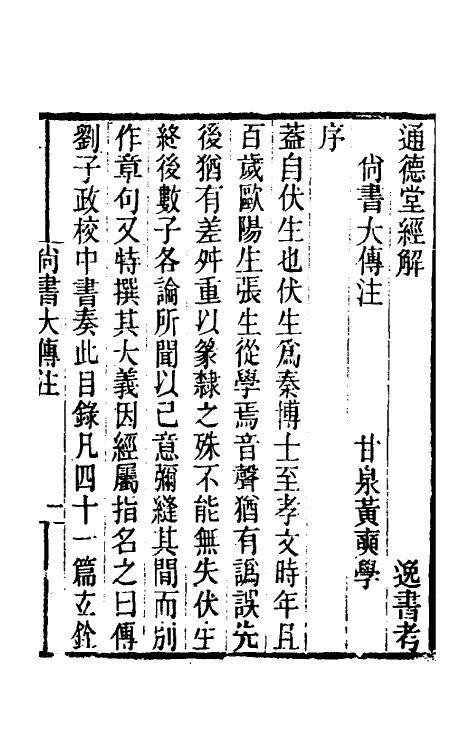 通德堂經解 逸書考
尙書大傳注 甘泉黃奭學
序
蓋自伏生也伏生爲秦博士至孝文時年且
百歲歐陽生張生從學焉音聲猶有譌誤先
後猶有差舛重以篆隸之殊不能無失伏生
終後數子各論所聞以己意彌縫其間而別
作章句又特撰其大義因經屬指名之曰傳
劉子政校中書奏此目錄凡四十一篇玄銓
尙書大傳注